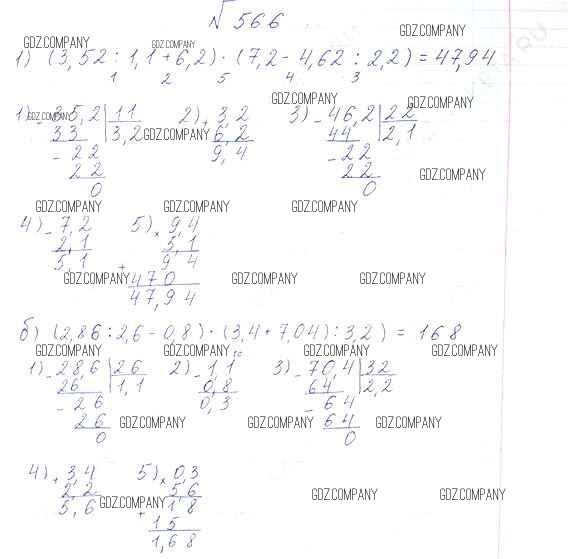 √566
GDZ.COMPANY GDZ.COMPANY GDZ.COMPANY
1) (3,52 : 1,1 + 6,2) · (7,2 - 4,62 : 2,2) = 47,94
1 2 5 4 3
GDZ.COMPANY GDZ.COMPANY
1) - 35,2 | 11 2) + 3,2 3) - 46,2 | 22
GDZ.COMPANY
33 3,2 6,2 44 2,1
GDZ.COMPANY
- 22 9,4 - 22
22 22 GDZ.COMPANY
0 0
GDZ.COMPANY GDZ.COMPANY GDZ.COMPANY
4) - 7,2 5) × 9,4
2,1 5,1
5,1 + 94
GDZ.COMPANY 470 GDZ.COMPANY GDZ.COMPANY
47,94
б) (2,86 : 2,6 - 0,8) · (3,4 + 7,04) : 3,2) = 168
GDZ.COMPANY GDZ.COMPANY 10 GDZ.COMPANY GDZ.COMPANY
1) - 28,6 | 26 2) - 1,1 3) - 70,4 | 32
26 1,1 0,8 64 2,2
- 26 0,3 - 64
26 GDZ.COMPANY 64 GDZ.COMPANY GDZ.COMPANY
0 0
4) + 3,4 5) × 0,3
2,2 5,6
5,6 GDZ.COMPANY + 18 GDZ.COMPANY GDZ.COMPANY
15
1,68